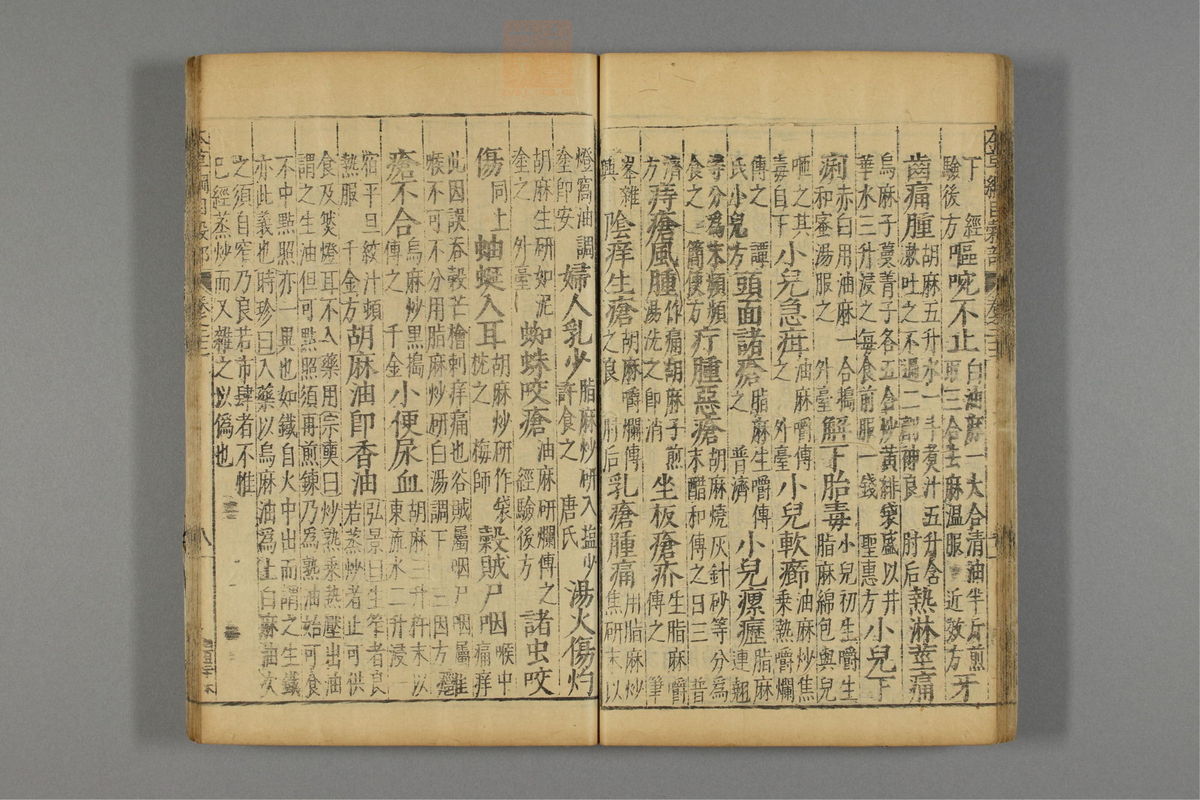 下 經驗後方 嘔啘不止 白油麻一大合清油半斤煎取三合去麻溫服 近效方 牙
齒痛腫 胡麻五升水一斗煮汁五升含漱吐之不過二劑神良 肘后 熱淋莖痛
烏麻子蔓菁子各五合炒黃緋袋盛以井華水三升浸之每食前服一錢 聖惠方 小兒下
痢 赤白用油麻一合搗和蜜湯服之 外臺 解下胎毒 小兒初生嚼生脂麻綿包與兒
咂之其毒自下 小兒急疳 油麻嚼傅之 外臺 小兒軟癤 油麻炒焦乘熱嚼爛
傅之 譚氏小兒方 頭面諸瘡 脂麻生嚼傅之 普濟 小兒瘰癧 脂麻連翹
等分爲末頻頻食之 簡便方 疔腫惡瘡 胡麻燒灰針砂等分爲末醋和傅之日三 普
濟方 痔瘡風腫 作痛胡麻子煎湯洗之即消 坐板瘡疥 生脂麻嚼傅之 筆
峯雜興 陰痒生瘡 胡麻嚼爛傅之良 肘后 乳瘡腫痛 用脂麻炒焦研末以
燈窩油調塗即安 婦人乳少 脂麻炒研入塩少許食之 唐氏 湯火傷灼
胡麻生研如泥塗之 外臺 蜘蛛咬瘡 油麻研爛傅之 經驗後方 諸虫咬
傷 同上 蚰蜒入耳 胡麻炒研作袋枕之 梅師 穀賊尸咽 喉中痛痒
此因誤吞穀芒槍刺痒痛也谷賊屬咽尸咽屬喉不可不分用脂麻炒研白湯調下 三因方
瘡不合 烏麻炒黑搗傅之 千金 小便尿血 胡麻三升杵末以東流水二升浸一
宿平旦絞汁頓熱服 千金方 胡麻油即香油 弘景曰生笮者良若蒸炒者止可供
食及然燈耳不入藥用宗奭曰炒熟乘熱壓出油謂之生油但可點照須再煎鍊乃爲熟油始可食
不中點照亦一異也如鐵自火中出而謂之生鐵亦此義也時珍曰入藥以烏麻油爲上白麻油次
之須自窄乃良若市肆者不惟已經蒸炒而又雜之以僞也